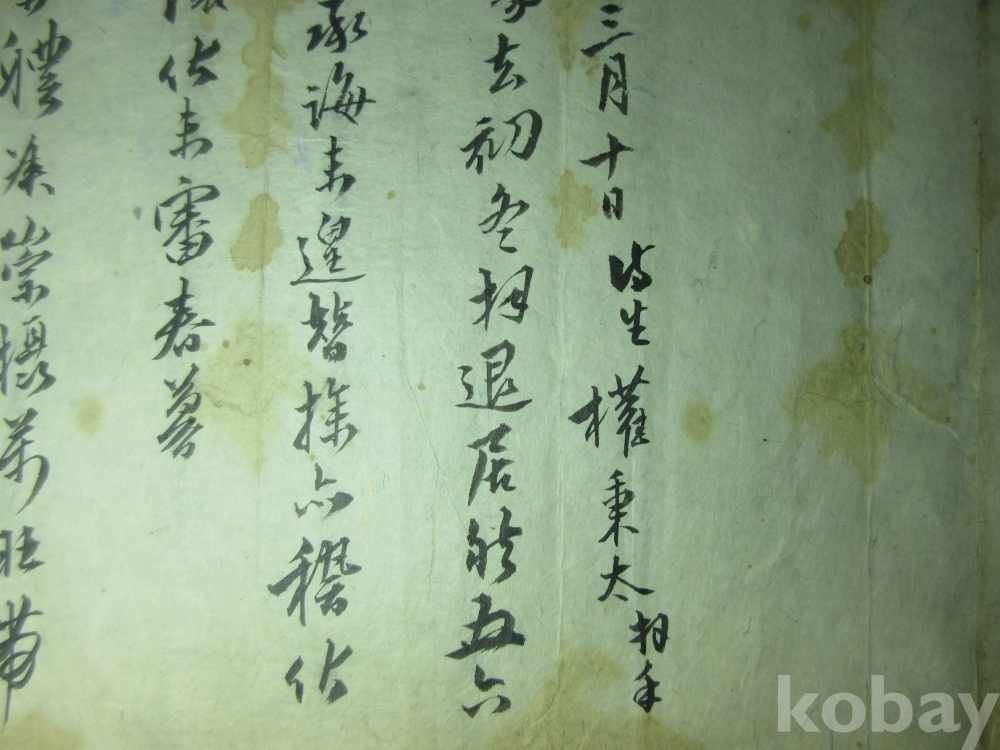 三月十日 侍生 權秉太 拜手
去初冬拜退居然五六
承誨未遑替探亦稽伏
伏未審春暮
體候崇攝萬旺帶
kobay